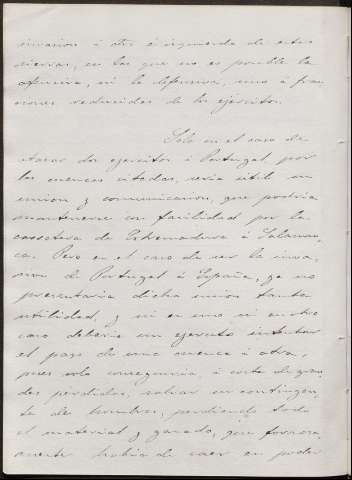 invasion á otra é izquierda de estas
sierras, en las que no es posible la
ofensiva, ni la defensiva, sino á frac
ciones reducidas de los ejercitos.
Solo en el caso de
atacar dos ejercitos á Portugal por
las cuencas citadas, seria útil su
union y comunicacion, que podria
mantenerse con facilidad por la
carretera de Extremadura á Salaman
ca. Pero en el caso de ser la inva
sion de Portugal á España, ya no
presentaria dicha union tanta
utilidad, y ni en uno ni en otro
caso deberia un ejercito intentar
el paso de una cuenca á otra,
pues solo conseguiria, á costa de gran
des perdidas, salvar un contingen
te de hombres, perdiendo todo
el material y ganado, que forzosa
mente habia de caer en poder